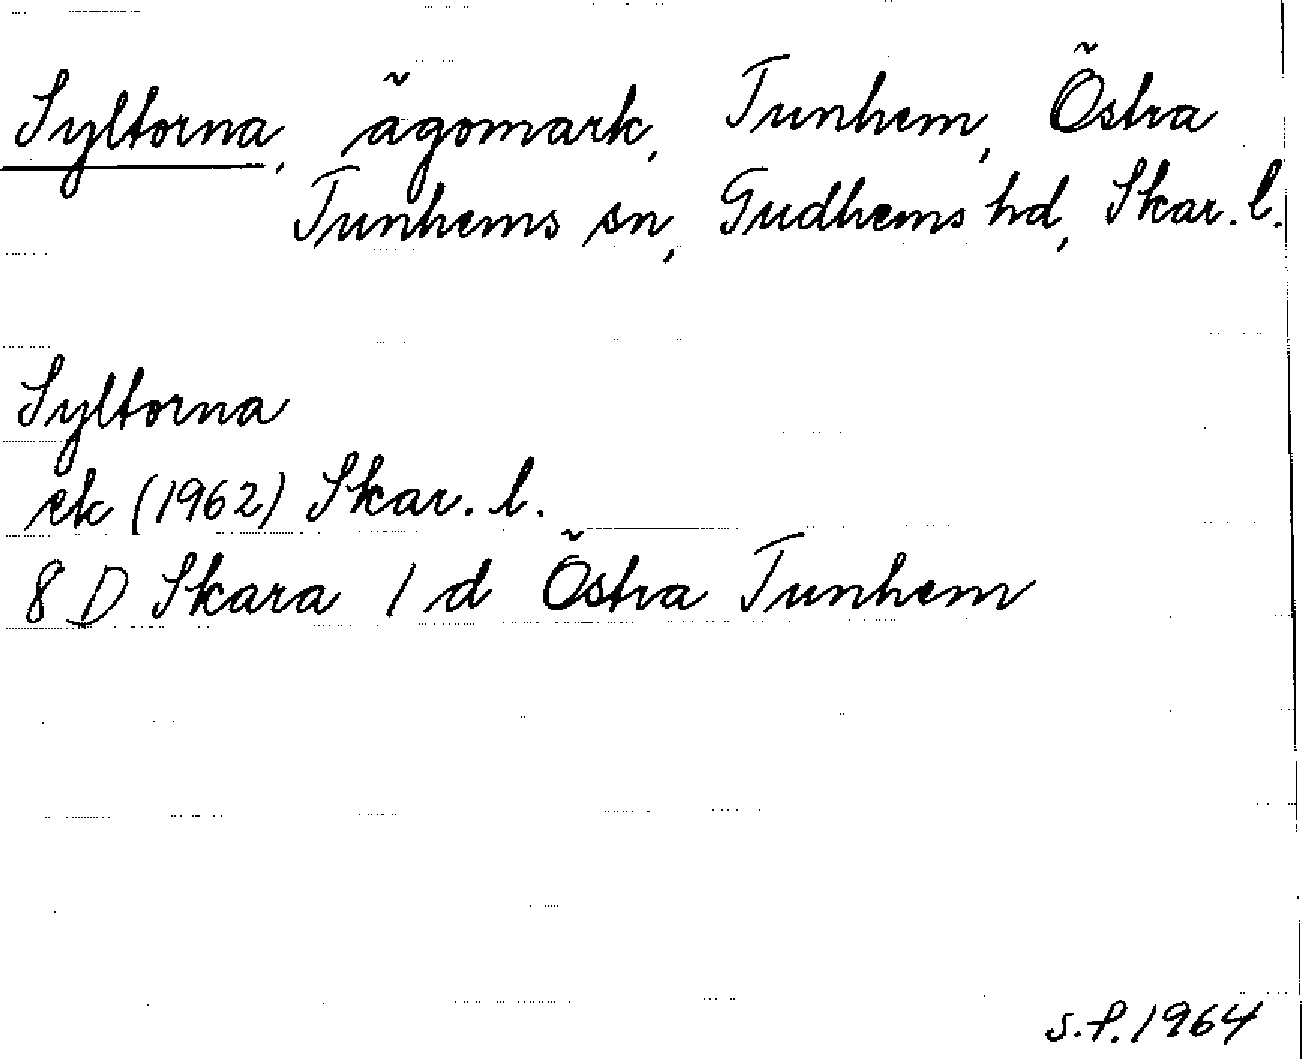 Syltorna, ägomark, Tunhem, Östra
Tunhems sn, Gudhems hd, Skar. l.
Syltorna
ek (1962) Skar. l.
8 D Skara 1 d Östra Tunhem
S.F. 1964